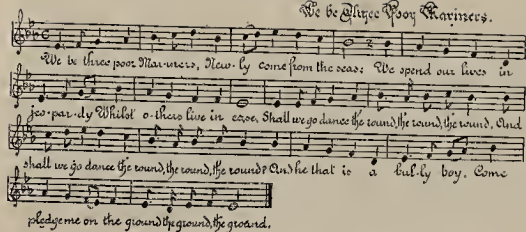 We be Three Poor Mariners.
We be three poor Mar-i-ners, New-ly come from the seas; We spend our lives in
jeo-par-dy Whilst o-thers live in ease. Shall we go dance the round, the round, the round, And
shall we go dance the round, the round, the round? And he that is a bul-ly boy, Come
pledge me on the ground, the ground, the ground.